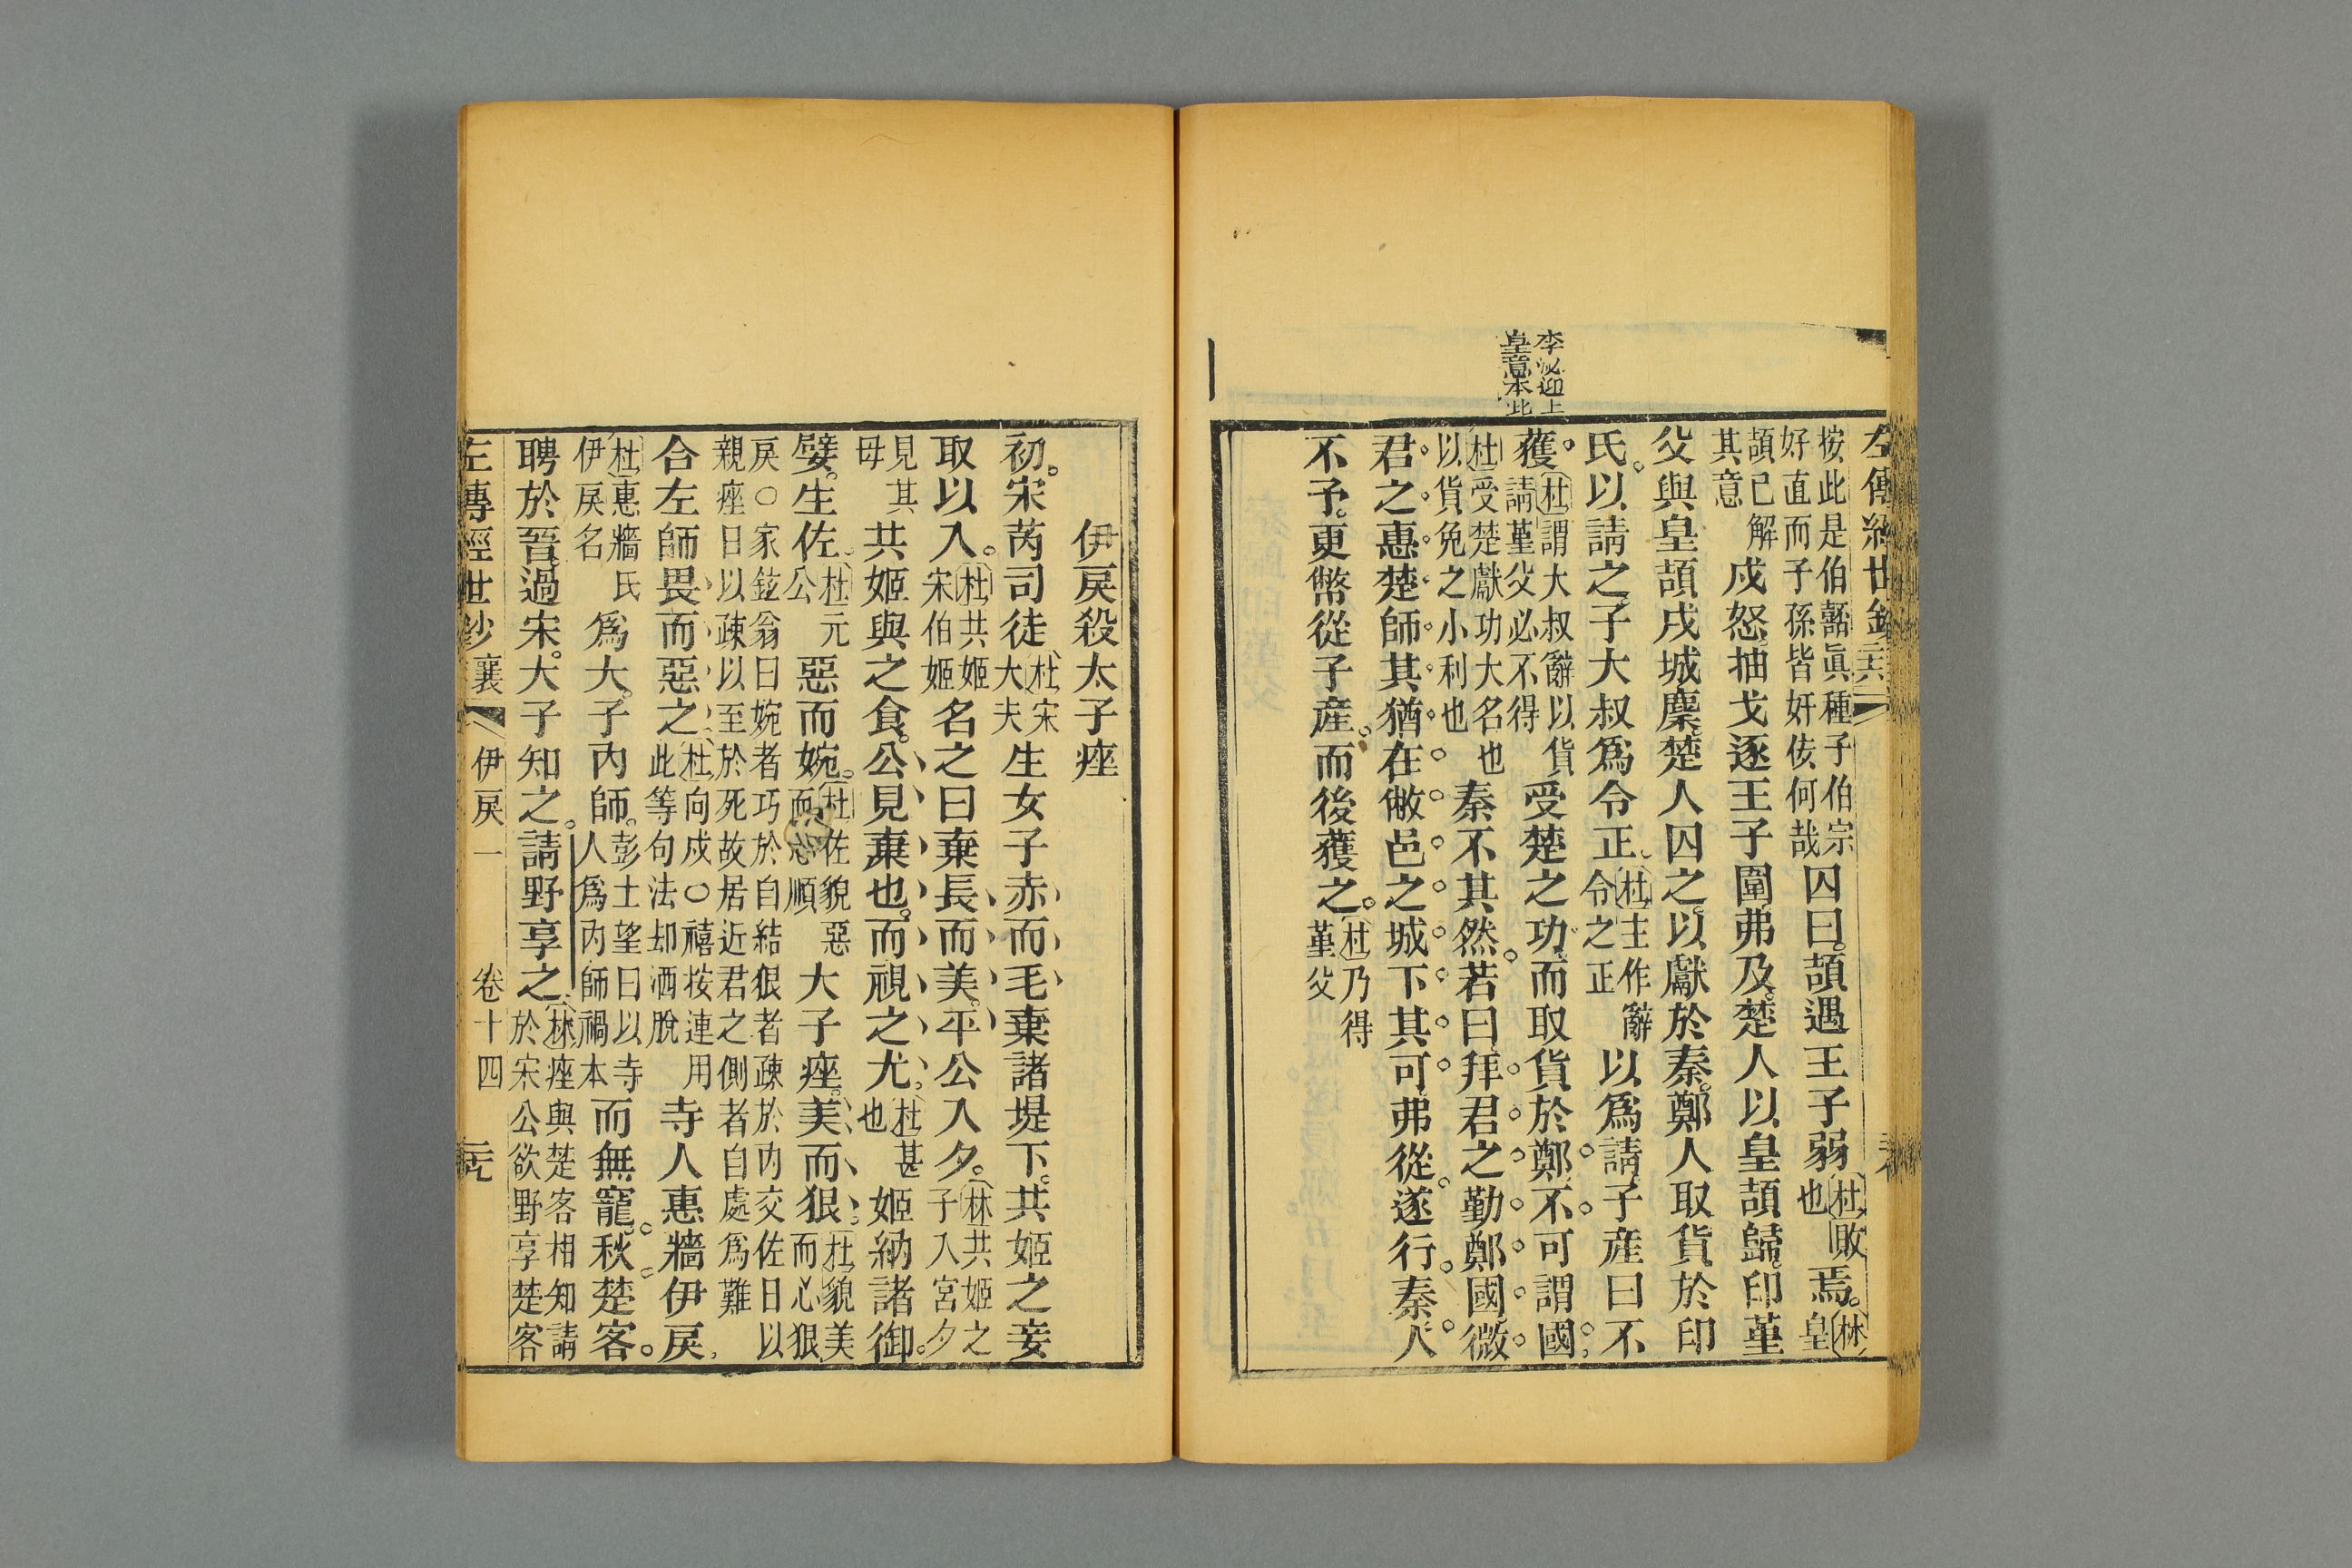 李泌迎上
皇意本此
按此是伯嚭眞種子伯宗
好直而子孫皆奸佞何哉
囚曰頡遇王子弱
杜敗
也
焉
林
皇
頡已解
其意
戍怒抽戈逐王子圍弗及楚人以皇頡歸印堇
父與皇頡戌城麇楚人囚之以獻於秦鄭人取貨於印
氏以請之子大叔爲令正
杜主作辭
令之正
以爲請子產曰不
獲
杜謂大叔辭以貨
請堇父必不得
受楚之功而取貨於鄭不可謂國
杜受楚獻功大名也
以貨免之小利也
秦不其然若曰拜君之勤鄭國微
君之惠楚師其猶在敝邑之城下其可弗從遂行秦人
不予更幣從子產而後獲之
杜乃得
堇父
伊戾殺太子痤
初宋芮司徒
杜宋
大夫
生女子赤而毛棄諸堤下共姬之妾
取以入
杜共姬
宋伯姬
名之曰棄長而美平公入夕
林共姬之
子入宮夕
見其
母
共姬與之食公見棄也而視之尤
杜甚
也
姬納諸御
嬖生佐
杜元
公
惡而婉
杜佐貌惡
而心順
大子痤美而狠
杜貌美
而心狠
戾○家鉉翁曰婉者巧於自結狠者疎於內交佐日以
親痤日以疎以至於死故居近君之側者自處爲難
合左師畏而惡之
杜向戌○禧按連用
此等句法却洒脫
寺人惠牆伊戾
杜惠牆氏
伊戾名
爲大子內師
彭士望曰以寺
人爲內師禍本
而無寵秋楚客
聘於晉過宋大子知之請野享之
林痤與楚客相知請
於宋公欲野享楚客
左傳經世鈔 襄 伊戾一 卷十四